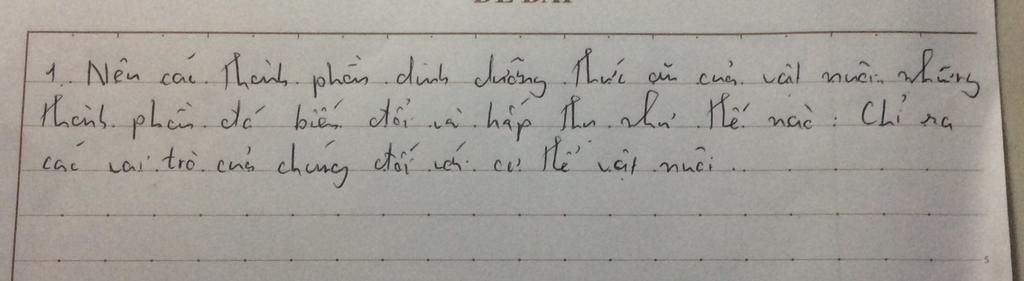 ĐỀ BÀI
1. Nêu các thành phần dinh dưỡng thức ăn của vật nuôi. những
thành phần đó biến đổi và hấp thu như thế nào. Chỉ ra
các vai trò của chúng đối với cơ thể vật nuôi..
5